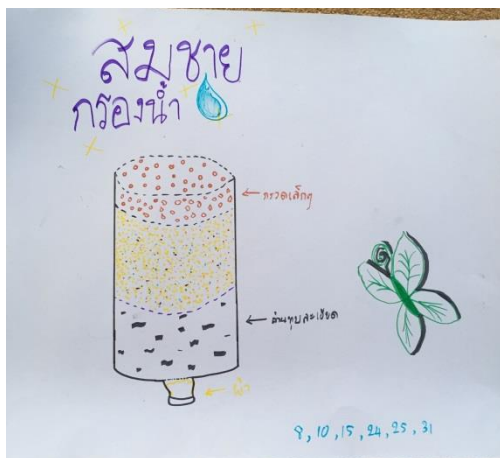 สมชาย
กรองน้ำ
กรวดเล็กๆ
ถ่านทุบละเอียด
ผ้า
8, 10, 15, 24, 25, 31